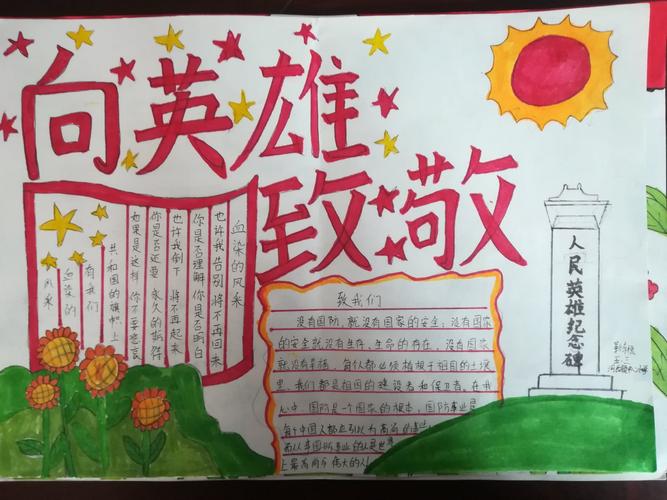 向英雄
致敬
血染的风采
也许我告别 将不再回来
你是否理解 你是否明白
也许我倒下 将不再起来
你是否还要 永久的期待
如果是这样 你不要悲哀
共和国的旗帜上
有我们
血染的
风采
致我们
没有国防，就没有国家的安全；没有国家
的安全就没有生存，生命的存在，没有国家
就没有幸福，每个人都必须植根于祖国的土壤
里，我们都是祖国的建设者和保卫者，在我
心中，国防是一个国家的根本，国防事业是
每个中国人都应引以为高尚的事业
而从事国防事业的人是世界
上最为高尚伟大的人！
人民英雄纪念碑
五.三